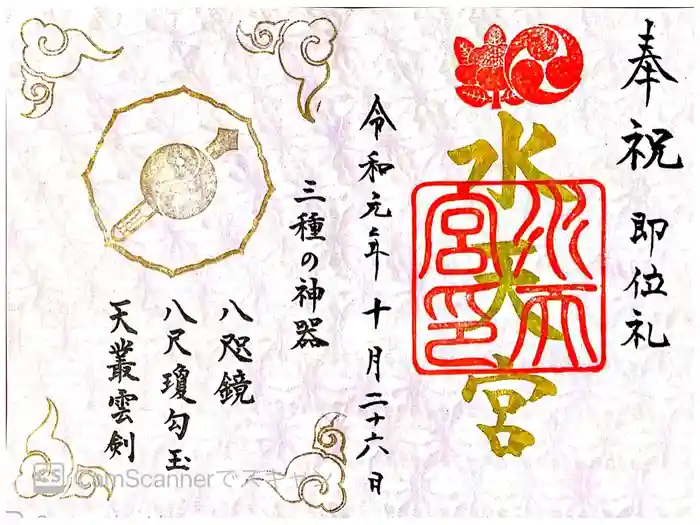 奉祝 即位礼
水天宮
水天宮印
令和元年十月二十六日
三種の神器
八咫鏡
八尺瓊勾玉
天叢雲剣
CS CamScannerでスキャン